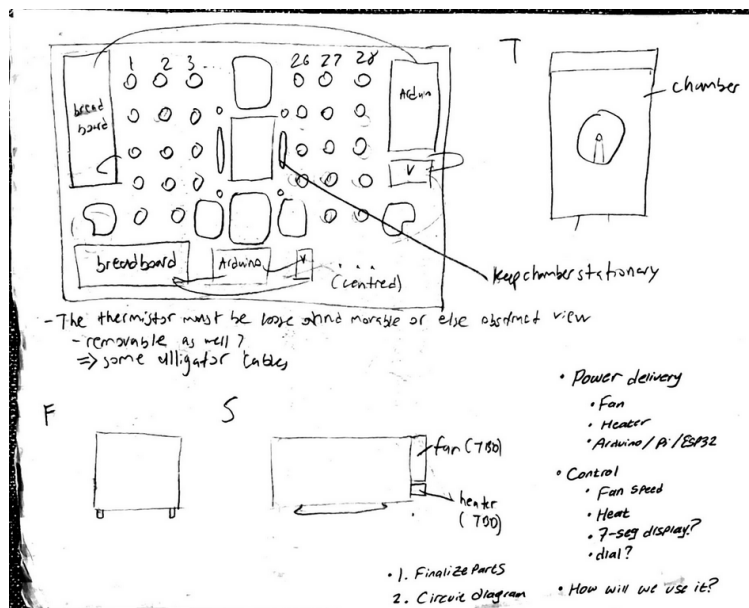 1 2 3... 26 27 28
bread
board
Arduin
V
breadboard
Arduino
V
...
(centred)
T
chamber
keep chamber stationary
- The thermistor must be loose and movable or else obstruct view
- removable as well?
⇒ some alligator cables
F
S
fan (TBD)
heater
(TBD)
• Power delivery
• Fan
• Heater
• Arduino/Pi/ESP32
• Control
• Fan speed
• Heat
• 7-seg display?
• dial?
• 1. Finalize Parts
2. Circuit diagram
• How will we use it?